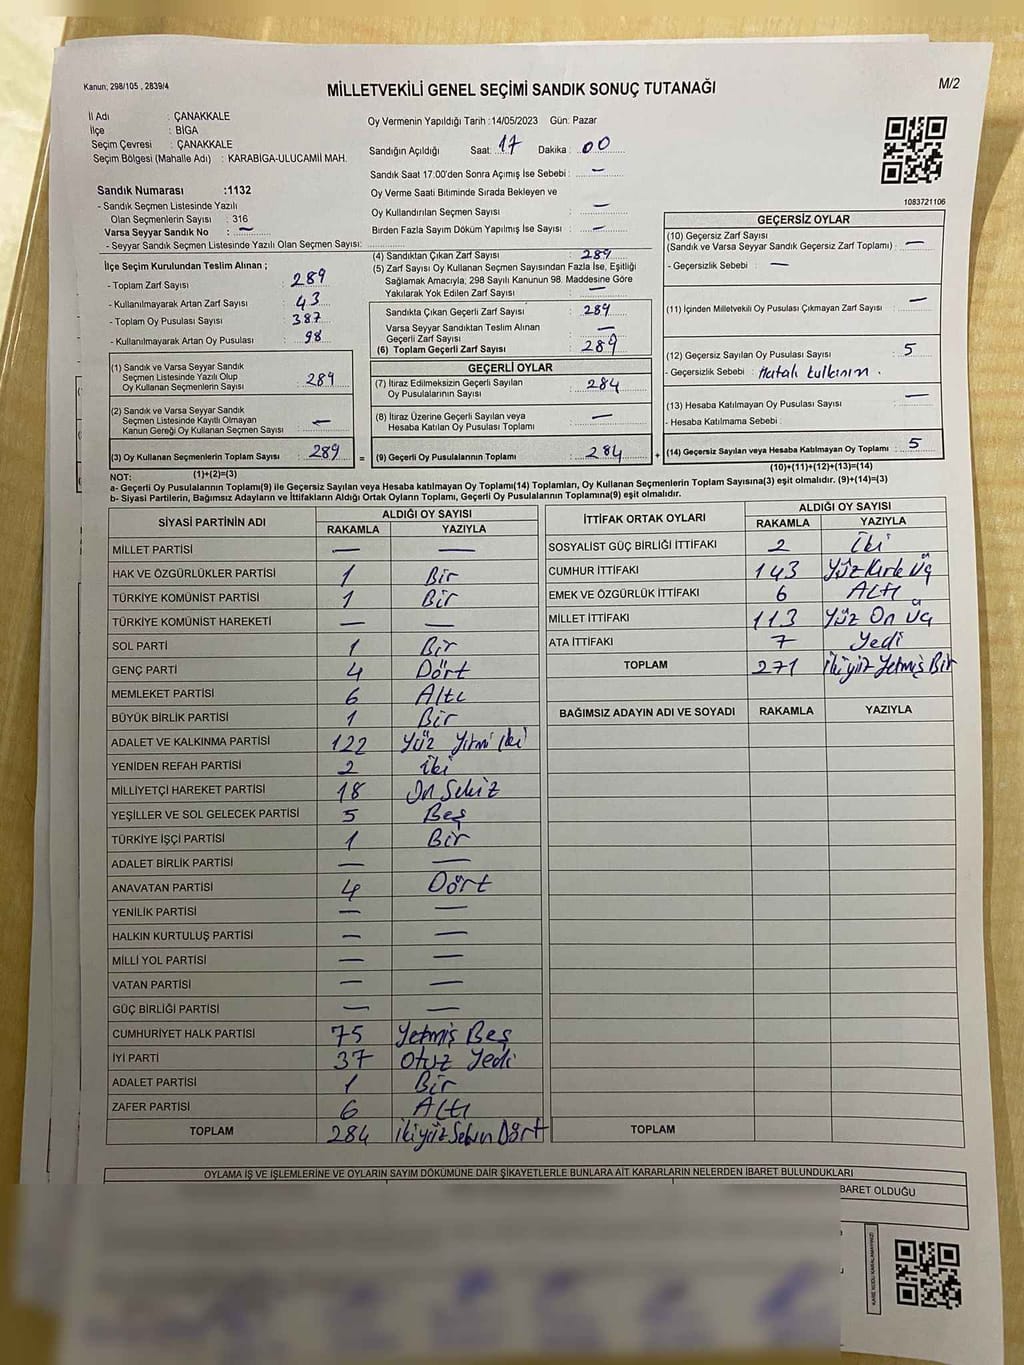 Kanun; 298/105 , 2839/4
MİLLETVEKİLİ GENEL SEÇİMİ SANDIK SONUÇ TUTANAĞI
M/2
İl Adı : ÇANAKKALE
İlçe : BİGA
Seçim Çevresi : ÇANAKKALE
Seçim Bölgesi (Mahalle Adı) : KARABİGA-ULUCAMİİ MAH.
Oy Vermenin Yapıldığı Tarih :14/05/2023 Gün: Pazar
Sandığın Açıldığı Saat: 17 Dakika : 00
Sandık Saat 17:00'den Sonra Açımış İse Sebebi : —
Oy Verme Saati Bitiminde Sırada Bekleyen ve
Oy Kullandırılan Seçmen Sayısı : —
Birden Fazla Sayım Döküm Yapılmış İse Sayısı : —
1083721106
Sandık Numarası :1132
- Sandık Seçmen Listesinde Yazılı
Olan Seçmenlerin Sayısı : 316
Varsa Seyyar Sandık No : —
- Seyyar Sandık Seçmen Listesinde Yazılı Olan Seçmen Sayısı:
İlçe Seçim Kurulundan Teslim Alınan ;
- Toplam Zarf Sayısı : 289
- Kullanılmayarak Artan Zarf Sayısı : 43
- Toplam Oy Pusulası Sayısı : 387
- Kullanılmayarak Artan Oy Pusulası : 98
(1) Sandık ve Varsa Seyyar Sandık
Seçmen Listesinde Yazılı Olup
Oy Kullanan Seçmenlerin Sayısı : 289
(2) Sandık ve Varsa Seyyar Sandık
Seçmen Listesinde Kayıtlı Olmayan
Kanun Gereği Oy Kullanan Seçmen Sayısı : —
(3) Oy Kullanan Seçmenlerin Toplam Sayısı : 289
(1)+(2)=(3)
(4) Sandıktan Çıkan Zarf Sayısı : 289
(5) Zarf Sayısı Oy Kullanan Seçmen Sayısından Fazla İse, Eşitliği
Sağlamak Amacıyla, 298 Sayılı Kanunun 98. Maddesine Göre
Yakılarak Yok Edilen Zarf Sayısı : —
Sandıkta Çıkan Geçerli Zarf Sayısı : 289
Varsa Seyyar Sandıktan Teslim Alınan
Geçerli Zarf Sayısı : —
(6) Toplam Geçerli Zarf Sayısı : 289
GEÇERLİ OYLAR
(7) İtiraz Edilmeksizin Geçerli Sayılan
Oy Pusulalarının Sayısı : 284
(8) İtiraz Üzerine Geçerli Sayılan veya
Hesaba Katılan Oy Pusulası Toplamı : —
= (9) Geçerli Oy Pusulalarının Toplamı : 284 +
GEÇERSİZ OYLAR
(10) Geçersiz Zarf Sayısı
(Sandık ve Varsa Seyyar Sandık Geçersiz Zarf Toplamı) : —
- Geçersizlik Sebebi : —
(11) İçinden Milletvekili Oy Pusulası Çıkmayan Zarf Sayısı : —
(12) Geçersiz Sayılan Oy Pusulası Sayısı : 5
- Geçersizlik Sebebi : Hatalı kullanım .
(13) Hesaba Katılmayan Oy Pusulası Sayısı : —
- Hesaba Katılmama Sebebi :
(14) Geçersiz Sayılan veya Hesaba Katılmayan Oy Toplamı : 5
(10)+(11)+(12)+(13)=(14)
NOT:
a- Geçerli Oy Pusulalarının Toplamı(9) ile Geçersiz Sayılan veya Hesaba katılmayan Oy Toplamı(14) Toplamları, Oy Kullanan Seçmenlerin Toplam Sayısına(3) eşit olmalıdır. (9)+(14)=(3)
b- Siyasi Partilerin, Bağımsız Adayların ve İttifakların Aldığı Ortak Oyların Toplamı, Geçerli Oy Pusulalarının Toplamına(9) eşit olmalıdır.
SİYASİ PARTİNİN ADI ALDIĞI OY SAYISI
RAKAMLA YAZIYLA
MİLLET PARTİSİ — —
HAK VE ÖZGÜRLÜKLER PARTİSİ 1 Bir
TÜRKİYE KOMÜNİST PARTİSİ 1 Bir
TÜRKİYE KOMÜNİST HAREKETİ — —
SOL PARTİ 1 Bir
GENÇ PARTİ 4 Dört
MEMLEKET PARTİSİ 6 Altı
BÜYÜK BİRLİK PARTİSİ 1 Bir
ADALET VE KALKINMA PARTİSİ 122 Yüz Yirmi iki
YENİDEN REFAH PARTİSİ 2 iki
MİLLİYETÇİ HAREKET PARTİSİ 18 On Sekiz
YEŞİLLER VE SOL GELECEK PARTİSİ 5 Beş
TÜRKİYE İŞÇİ PARTİSİ 1 Bir
ADALET BİRLİK PARTİSİ — —
ANAVATAN PARTİSİ 4 Dört
YENİLİK PARTİSİ — —
HALKIN KURTULUŞ PARTİSİ — —
MİLLİ YOL PARTİSİ — —
VATAN PARTİSİ — —
GÜÇ BİRLİĞİ PARTİSİ — —
CUMHURİYET HALK PARTİSİ 75 Yetmiş Beş
İYİ PARTİ 37 Otuz Yedi
ADALET PARTİSİ 1 Bir
ZAFER PARTİSİ 6 Altı
TOPLAM 284 ikiyüz Seksen Dört
İTTİFAK ORTAK OYLARI ALDIĞI OY SAYISI
RAKAMLA YAZIYLA
SOSYALİST GÜÇ BİRLİĞİ İTTİFAKI 2 iki
CUMHUR İTTİFAKI 143 Yüz Kırk Üç
EMEK VE ÖZGÜRLÜK İTTİFAKI 6 Altı
MİLLET İTTİFAKI 113 Yüz On Üç
ATA İTTİFAKI 7 Yedi
TOPLAM 271 ikiyüz Yetmiş Bir
BAĞIMSIZ ADAYIN ADI VE SOYADI RAKAMLA YAZIYLA
TOPLAM
OYLAMA İŞ VE İŞLEMLERİNE VE OYLARIN SAYIM DÖKÜMÜNE DAİR ŞİKAYETLERLE BUNLARA AİT KARARLARIN NELERDEN İBARET BULUNDUKLARI
BARET OLDUĞU